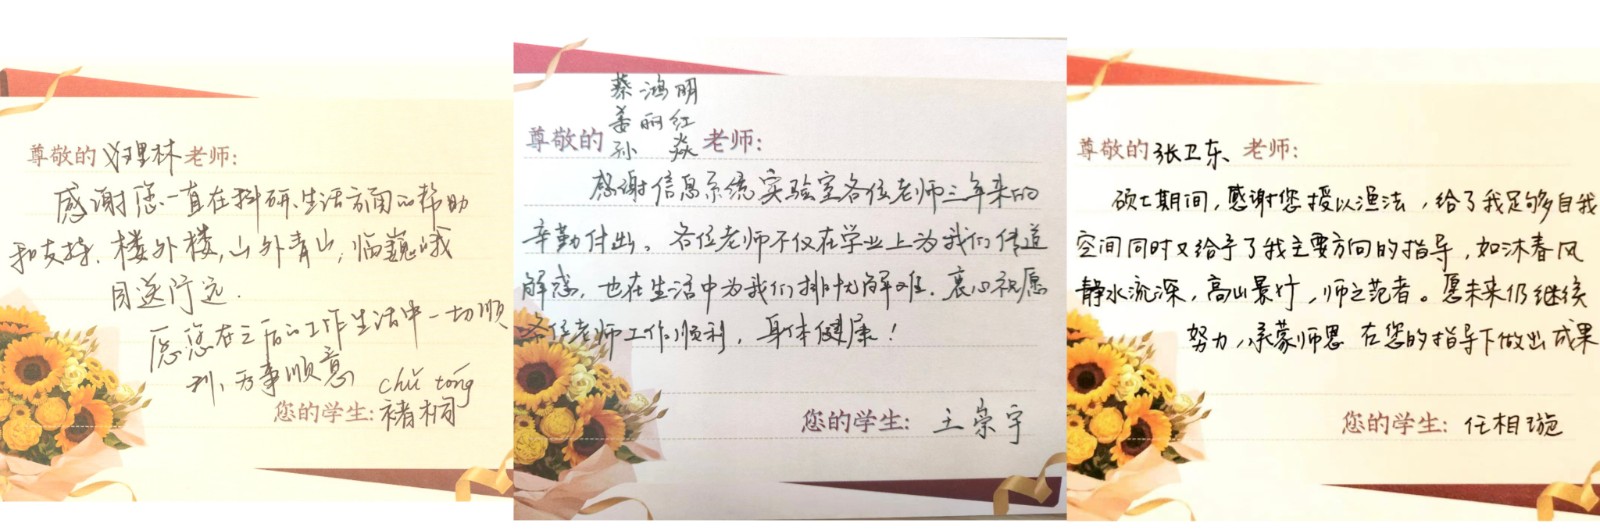 尊敬的 理林老师:
感谢您一直在科研、生活方面的帮助
和支持.楼外楼,山外青山,临巍峨
目送行远.
愿您在之后的工作生活中一切顺
利,万事顺意
chǔ tóng
您的学生:褚桐
蔡鸿明
姜丽红
尊敬的 孙焱 老师:
感谢信息系统实验室各位老师三年来的
辛勤付出。各位老师不仅在学业上为我们传道
解惑,也在生活中为我们排忧解难.衷心祝愿
各位老师工作顺利,身体健康!
您的学生:王崇宇
尊敬的张卫东、老师:
硕士期间,感谢您授以渔法,给了我足够自我
空间同时又给予了我主要方向的指导,如沐春风
静水流深,高山景行,师之范者。愿未来仍继续
努力,承蒙师恩 在您的指导下做出成果
您的学生:任相璇